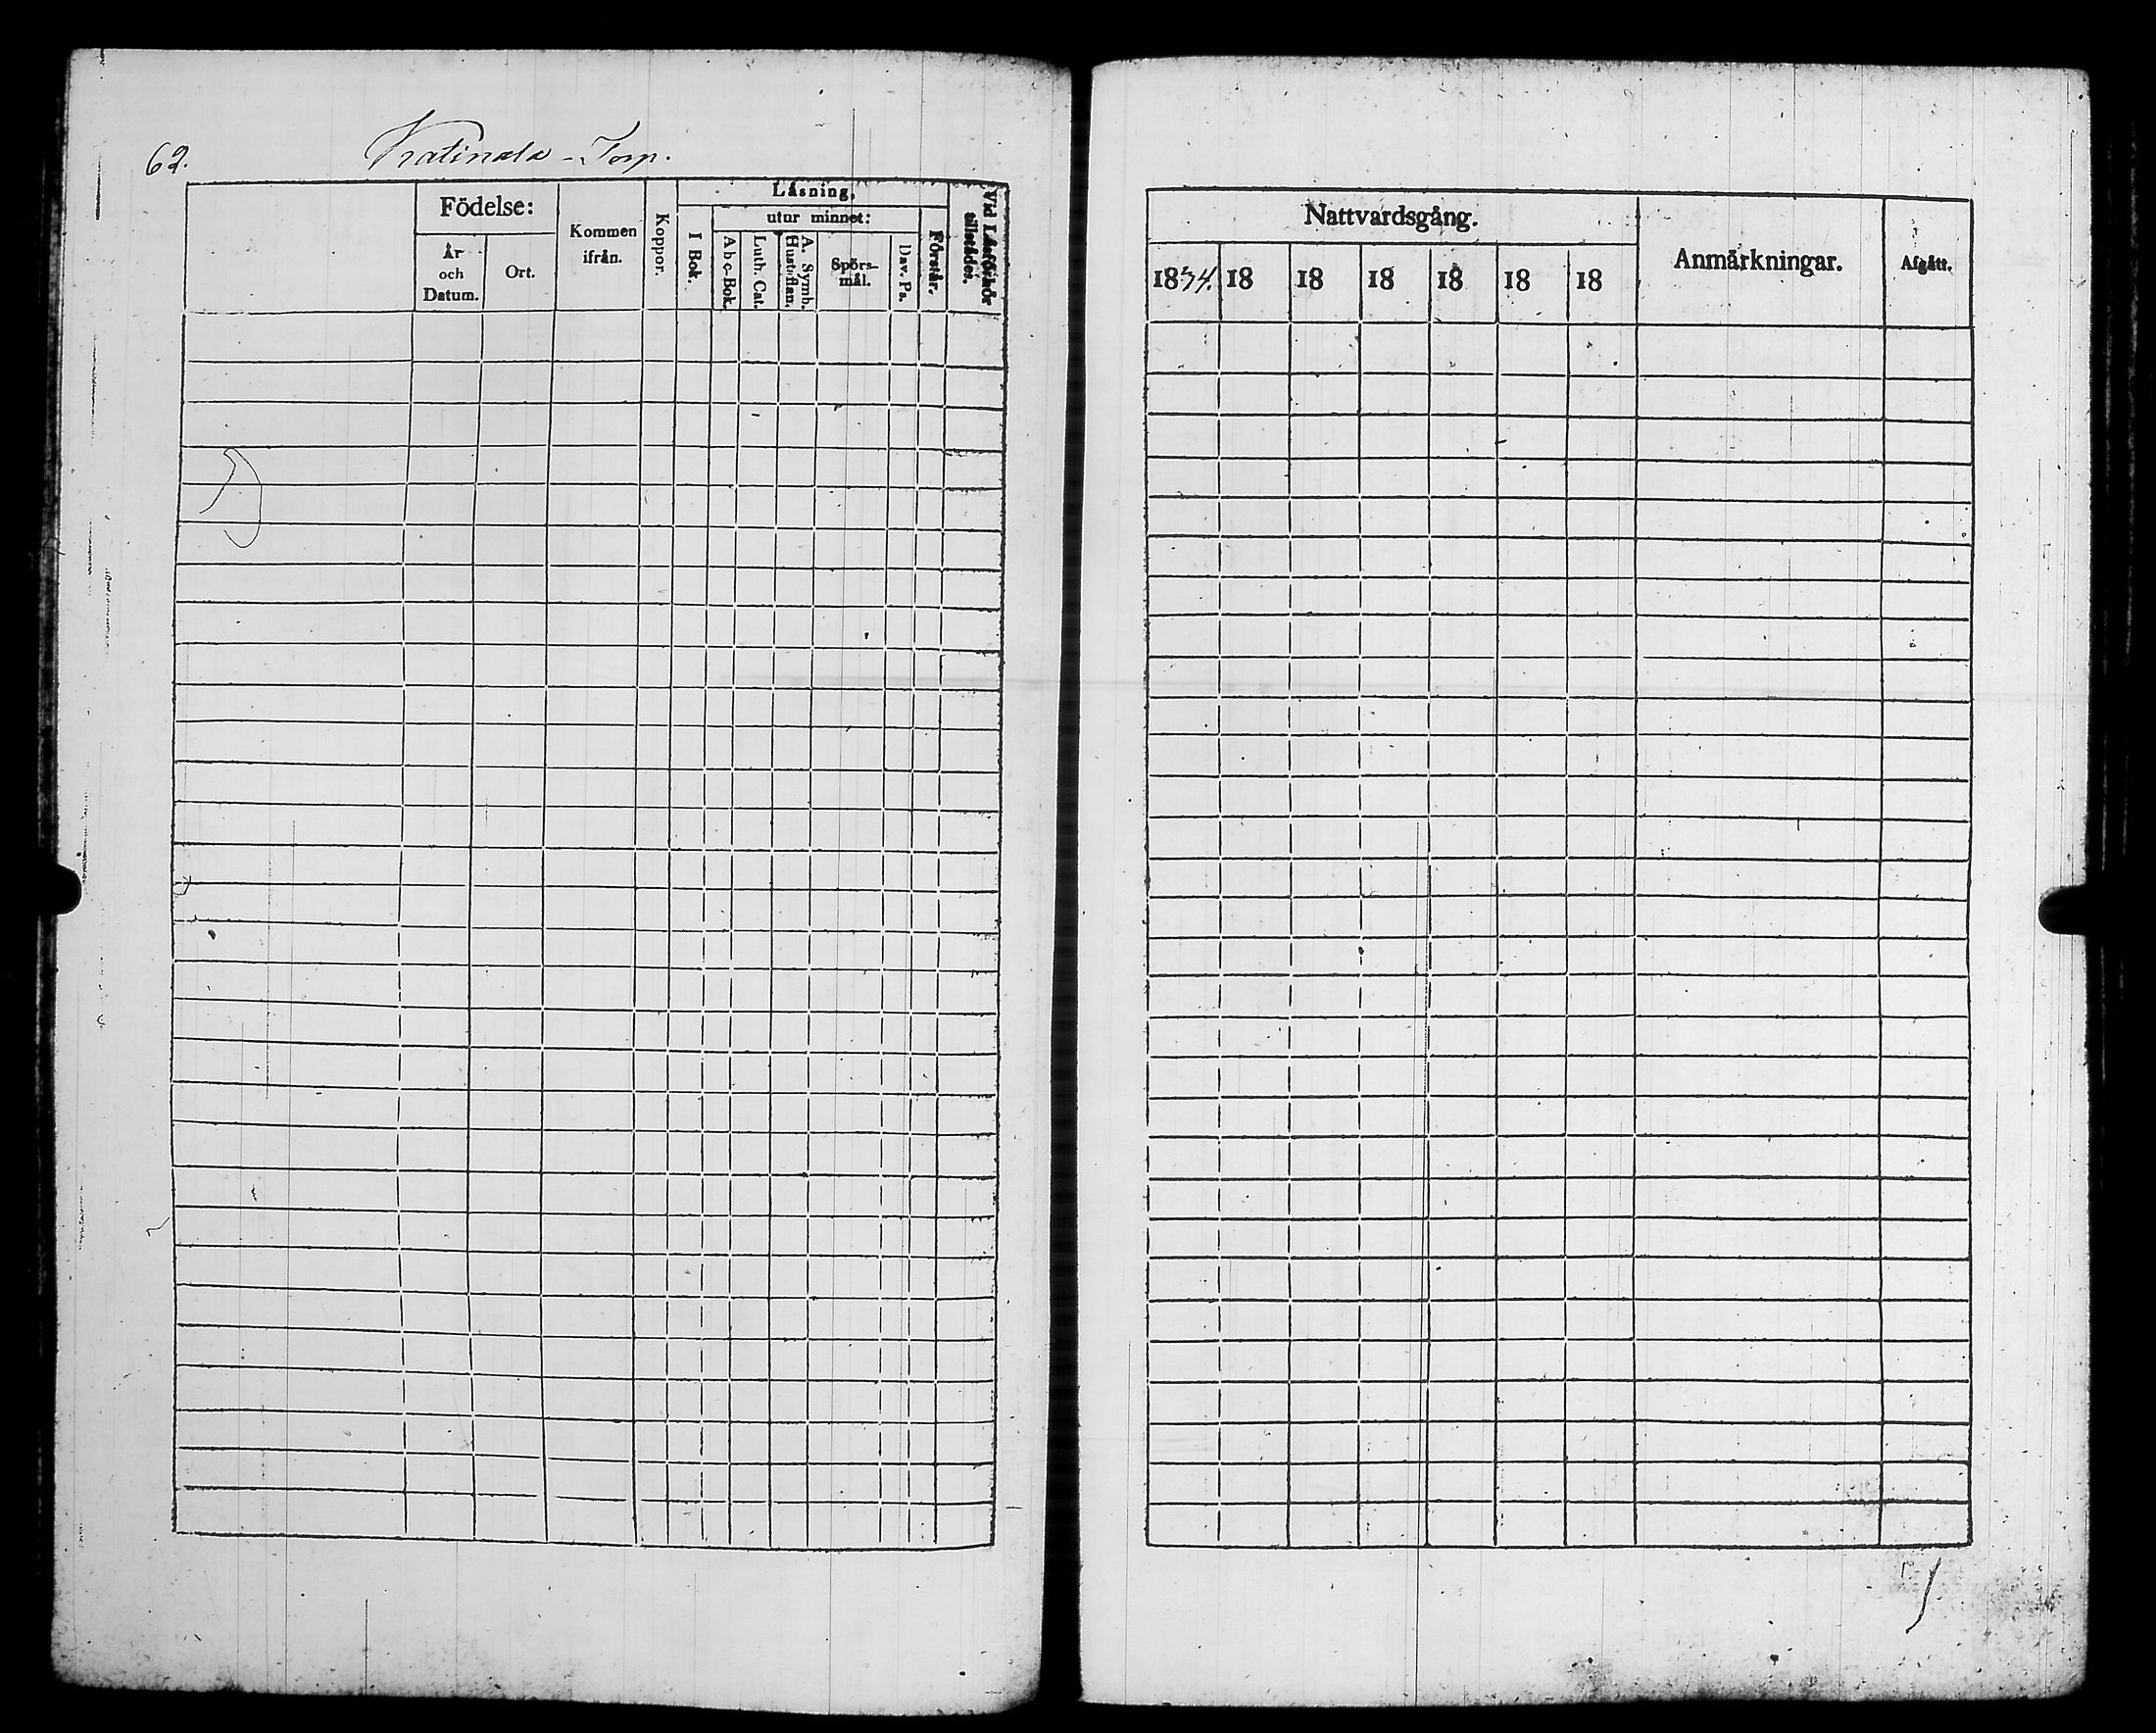 62. Torp.
Födelse:
År och Datum.
Ort.
Kommen ifrån.
Koppor.
Låsning.
I Bok.
utur minnet:
A b c-Bok.
Luth. Cat.
A. Symb. Hustaflan.
Spörs-mål.
Dav. Ps.
Förstår.
Vid Låsförhör tillstådes.
Nattvardsgång.
1834. 18 18 18 18 18 18
Anmårkningar.
Afgått.